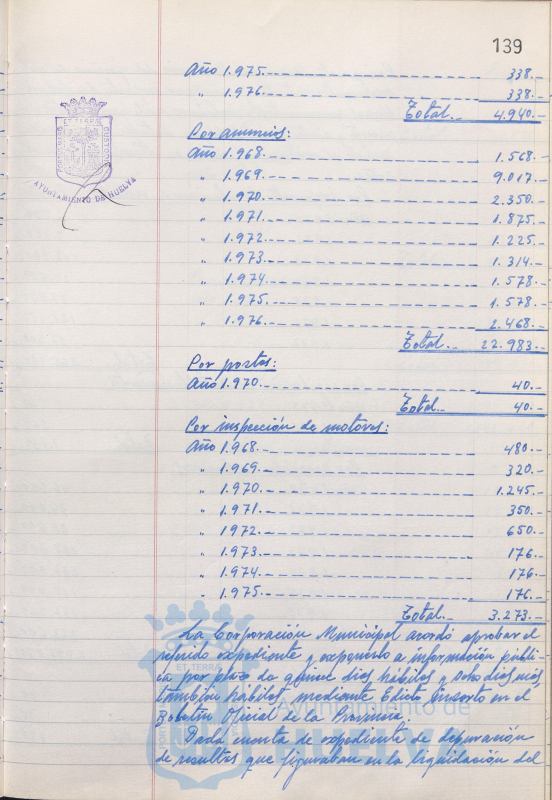 139
Año 1.975. 338.-
" 1.976. 338.-
Total.- 4.940.-
Por anuncios:
Año 1.968. 1.568.-
" 1.969. 9.017.-
" 1.970. 2.350.-
" 1.971. 1.875.-
" 1.972. 1.225.-
" 1.973. 1.314.-
" 1.974. 1.578.-
" 1.975. 1.578.-
" 1.976. 2.468.-
Total.- 22.983.-
Por portes:
Año 1.970. 40.-
Total.- 40.-
Por inspección de motores:
Año 1.968. 480.-
" 1.969. 320.-
" 1.970. 1.245.-
" 1.971. 350.-
" 1972. 650.-
" 1.973. 176.-
" 1.974. 176.-
" 1.975. 176.-
Total.- 3.273.-
La Corporación Municipal acordó aprobar el
referido expediente y exponerlo a información públi-
ca por plazo de quince días hábiles y ocho días más,
también hábiles, mediante Edicto inserto en el
Boletín Oficial de la Provincia.
Dada cuenta de expediente de depuración
de resultas que figuraban en la liquidación del
AYUNTAMIENTO DE HUELVA
Ayuntamiento de
HUELVA